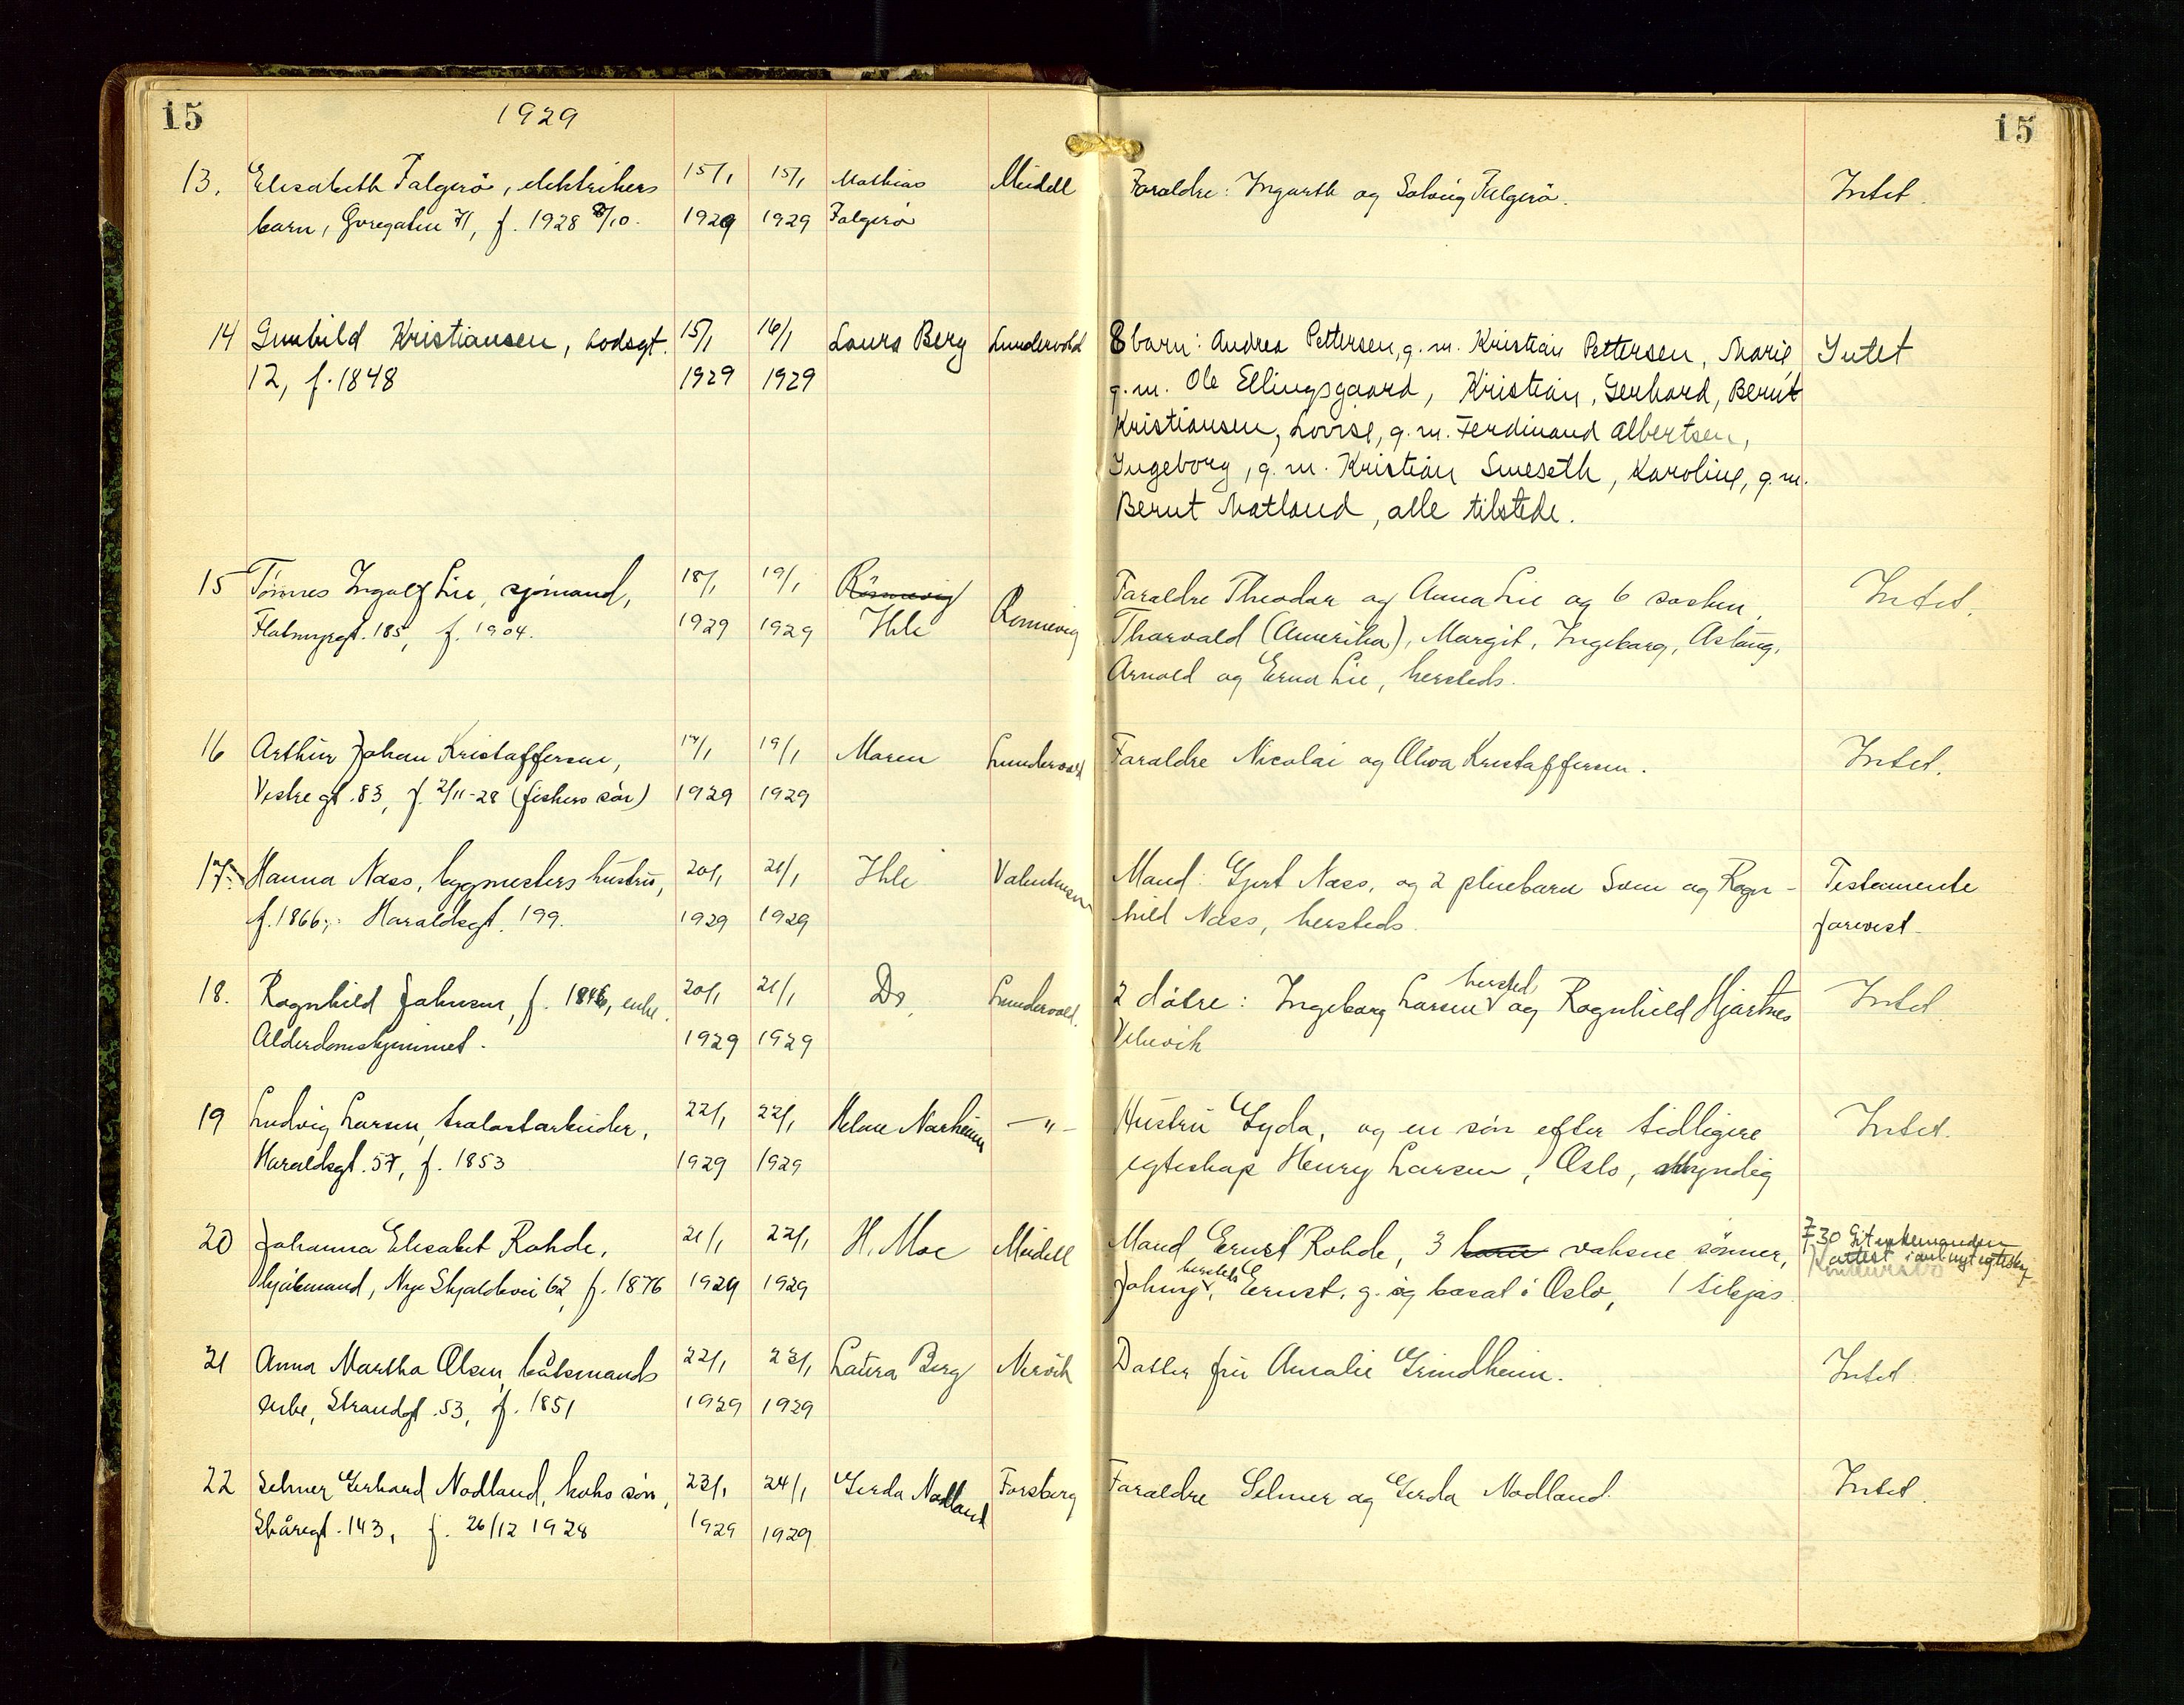 15
1929
15
13. Elisabeth Falgerö, elektrikers 15/1 15/1 Mathias Meidell Foraldre: Ingarth og Solveig Falgerö. Intet.
barn, Goregaten 71, f. 1928 8/10. 1929 1929 Falgerö
14 Gunhild Kristiansen, Lodsgt. 15/1 16/1 Laura Berg Lundervold 8 barn: Andrea Pettersen, g.m. Kristian Pettersen, Marie, Intet
12, f. 1848 1929 1929 g.m. Ole Ellingsgaard, Kristian, Gerhard, Bernt
Kristiansen, Lovise, g.m. Ferdinand Albertsen,
Ingeborg, g.m. Kristian Smeseth, Karoline, g.m.
Bernt Matland, alle tilstede.
15 Tönnes Ingolf Lie, sjömand, 18/1 19/1 Rönnevig Rönnevig Foraldre Theodor og Anna Lie og 6 sosken, Intet.
Flotmyrgt. 185, f. 1904. 1929 1929 Ihle Thorvald (Amerika), Margit, Ingeborg, Aslaug,
Arnold og Erna Lie, hersteds.
16 Arthur Johan Kristoffersen, 17/1 19/1 Maren Lundervold Foraldre Nicolai og Olava Kristoffersen. Intet.
Vestregt. 83, f. 2/11-28 (fiskers sön) 1929 1929
17. Hanna Næss, bygmesters hustru, 20/1 21/1 Ihle Valentinsen Mand: Gjert Næss, og 2 pleiebarn Sam og Ragn- Testamente
f. 1866; Haraldsgt. 199. 1929 1929 hild Næss, hersteds. forevist
18. Ragnhild Johnsen, f. 1846, enke, 20/1 21/1 Do. Lundervold. 2 döttre: Ingeborg Larsen hersted og Ragnhild Hjartnes Intet
Alderdomshjemmet. 1929 1929 Velsvik
19 Ludvig Larsen, tralastarbeider, 22/1 22/1 Helene Norheim —"— Hustru Gyda, og en sön efter tidligere Intet.
Haraldsgt. 57, f. 1853 1929 1929 egteskap Henry Larsen, Oslo, myndig
20 Johanna Elisabet Rohde, 21/1 22/1 H. Moe Meidell Mand Ernst Rohde, 3 barn voksne sönner, 7.30 Git enkemanden
attest i anl nyt egtesk.
Nye Skjoldavei 62, f. 1876 1929 1929 Johny hersteds, Ernst, g. og bosat i Oslo, 1 tilsjøs
21 Anna Martha Olsen, båtsmands 22/1 23/1 Laura Berg Nervik Datter fru Amalie Grindheim. Intet
enke, Strandgt. 53, f. 1851 1929 1929
22 Selmer Gerhard Nodland, koks sön, 23/1 24/1 Gerda Nodland Forsberg Foraldre Selmer og Gerda Nodland. Intet.
Skåregt. 143, f. 26/12 1928 1929 1929